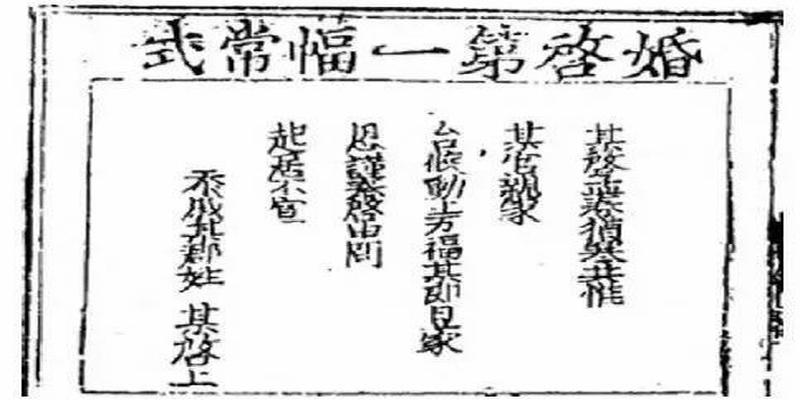 婚啓第一幅常式
某啓孟春猶寒共惟
某官親家
台候動止万福某即日蒙
恩謹奉啓申問
起居不宣
忝戚孔郡姓 某啓上